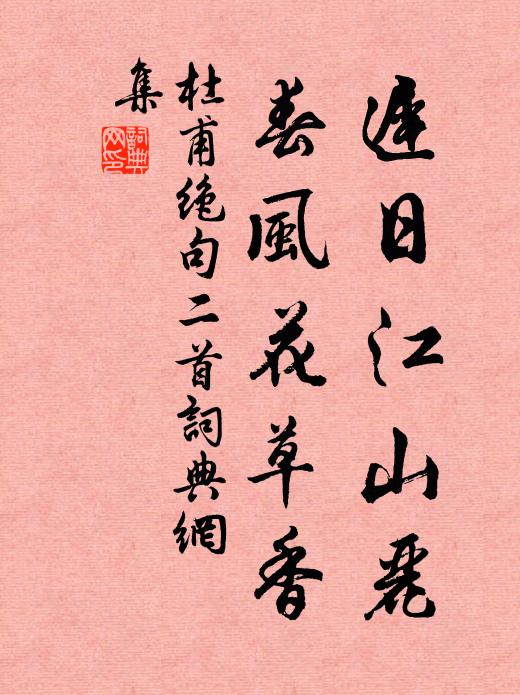 遲日江山麗
春風花草香
杜甫絶句二首詞典網
集
詞典
网印